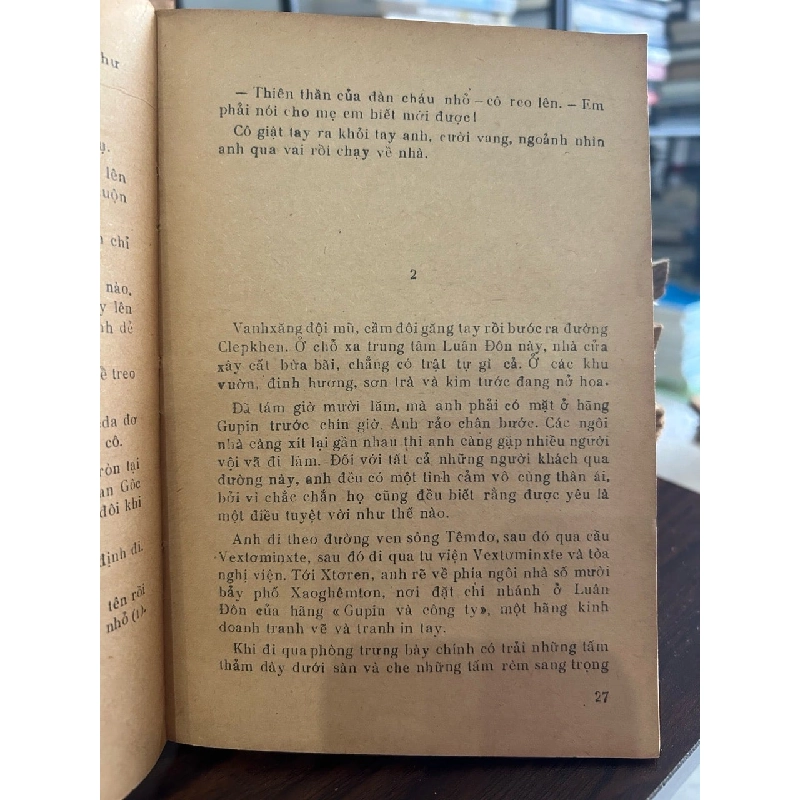 hư
ụ.
lên
uộn
chỉ
nào,
y lên
nh dẻ
ề treo
da đơ
cô.
ròn tại
an Gôc
đôi khi
định đi.
tên rồi
nhỏ (1).
— Thiên thần của đàn cháu nhỏ — cô reo lên. — Em
phải nói cho mẹ em biết mới được!
Cô giật tay ra khỏi tay anh, cười vang, ngoảnh nhìn
anh qua vai rồi chạy về nhà.
2
Vanhxăng đội mũ, cầm đôi găng tay rồi bước ra đường
Clepkhen. Ở chỗ xa trung tâm Luân Đôn này, nhà cửa
xây cất bừa bãi, chẳng có trật tự gì cả. Ở các khu
vườn, đinh hương, sơn trà và kim tước đang nở hoa.
Đã tám giờ mười lăm, mà anh phải có mặt ở hãng
Gupin trước chín giờ. Anh rảo chân bước. Các ngôi
nhà càng xít lại gần nhau thì anh càng gặp nhiều người
vội vã đi làm. Đối với tất cả những người khách qua
đường này, anh đều có một tình cảm vô cùng thân ái,
bởi vì chắc chắn họ cũng đều biết rằng được yêu là
một điều tuyệt vời như thế nào.
Anh đi theo đường ven sông Têmdơ, sau đó qua cầu
Vextơminxte, sau đó đi qua tu viện Vextơminxte và tòa
nghị viện. Tới Xtơren, anh rẽ về phía ngôi nhà số mười
bảy phố Xaoghêmtơn, nơi đặt chi nhánh ở Luân
Đôn của hãng «Gupin và công ty», một hãng kinh
doanh tranh vẽ và tranh in tay.
Khi đi qua phòng trưng bày chính có trải những tấm
thảm dày dưới sàn và che những tấm rèm sang trọng
27